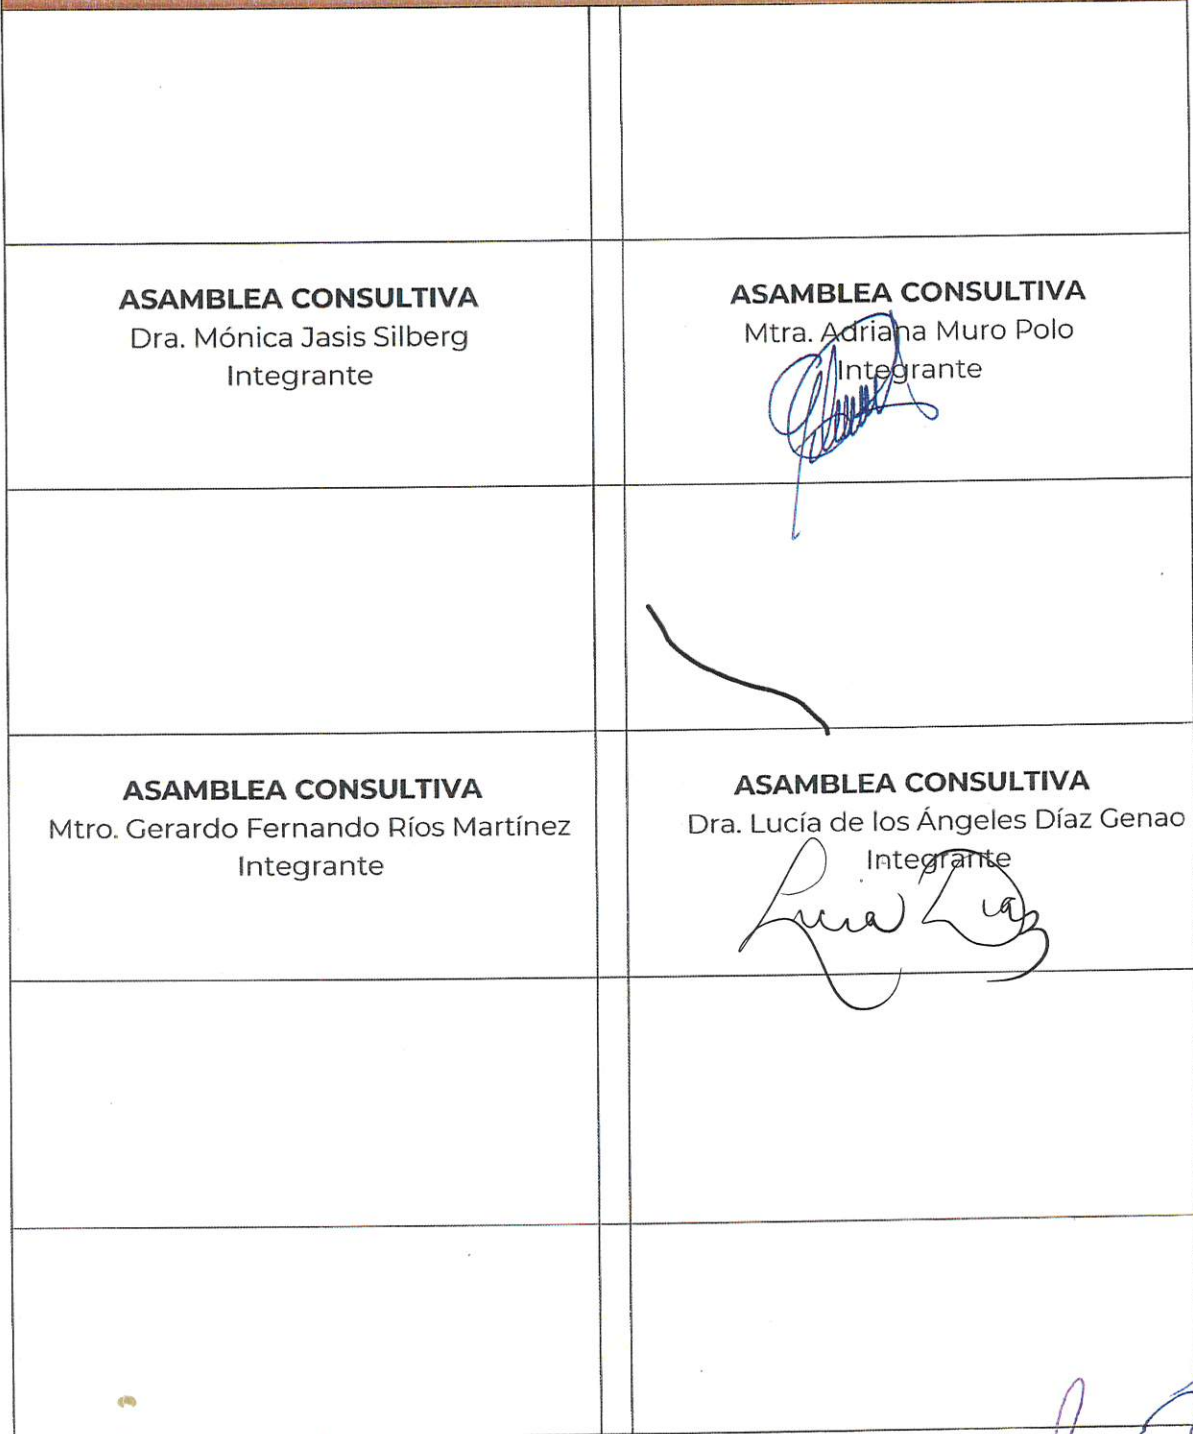 ASAMBLEA CONSULTIVA
Dra. Mónica Jasis Silberg
Integrante
ASAMBLEA CONSULTIVA
Mtra. Adriana Muro Polo
Integrante
ASAMBLEA CONSULTIVA
Mtro. Gerardo Fernando Ríos Martínez
Integrante
ASAMBLEA CONSULTIVA
Dra. Lucía de los Ángeles Díaz Genao
Integrante
Lucia Diaz